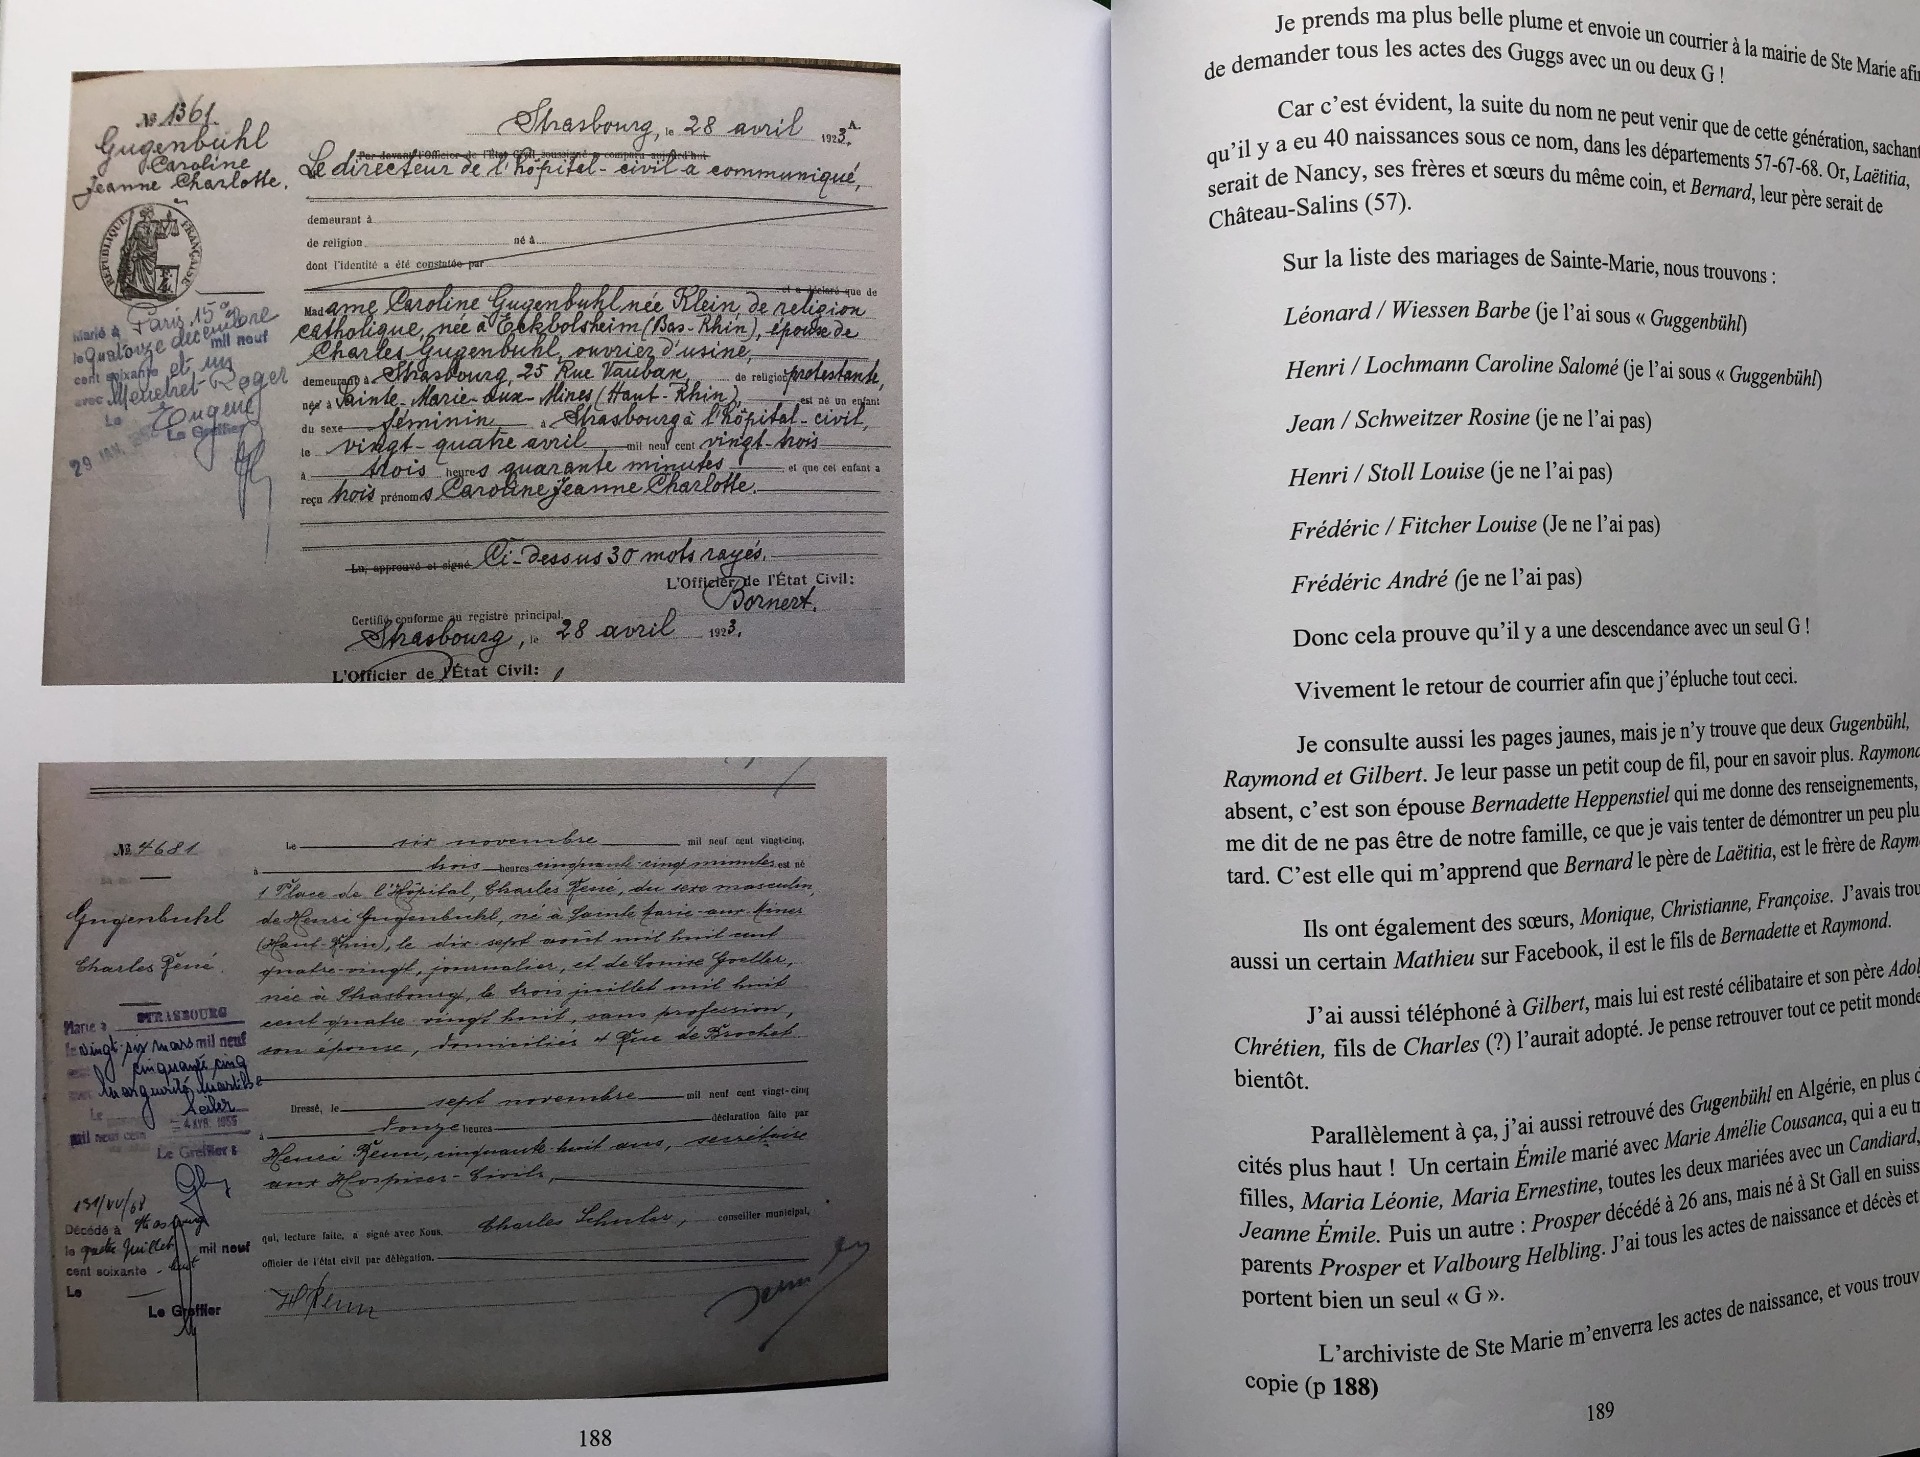 № 1361.
Gugenbühl
Caroline
Jeanne Charlotte.
RÉPUBLIQUE FRANÇAISE
Marié à Paris 15e
le quatorze décembre
mil neuf
cent soixante et un
avec Menetret Roger
Eugene
Le
Le Greffier
29
Strasbourg, le 28 avril 1923. A.
Par devant l'Officier de l'État Civil soussigné a comparu aujourd'hui
Le directeur de l'hôpital-civil a communiqué,
demeurant à
de religion né à
dont l'identité a été constatée par
et a déclaré que de
Madame Caroline Gugenbuhl née Klein, de religion
catholique, née à Eckbolsheim (Bas-Rhin), épouse de
Charles Gugenbuhl, ouvrier d'usine,
demeurant à Strasbourg, 25 Rue Vauban, de religion protestante,
né à Sainte-Marie-aux-Mines (Haut-Rhin), est né un enfant
du sexe féminin à Strasbourg à l'hôpital-civil,
le vingt-quatre avril mil neuf cent vingt-trois
à trois heures quarante minutes et que cet enfant a
reçu trois prénoms Caroline Jeanne Charlotte.
Lu, approuvé et signé Ci-dessus 30 mots rayés.
L'Officier de l'État Civil:
Bornert.
Certifié conforme au registre principal,
Strasbourg, le 28 avril 1923.
L'Officier de l'État Civil:
№ 4681
Gugenbuhl
Charles René.
Marié à STRASBOURG
le vingt-six mars mil neuf
cinquante cinq
Marguerite
Seiler
Le
mil neuf cent 4 AVR. 1955
Le Greffier
Décédé à Strasbourg
le quatre juillet mil neuf
cent soixante-huit
Le
Le Greffier
Le six novembre mil neuf cent vingt-cinq,
à trois heures cinquante-cinq minutes est né
1 Place de l'Hôpital, Charles René, du sexe masculin,
de Henri Gugenbuhl, né à Sainte Marie-aux-Mines
(Haut-Rhin), le dix-sept août mil huit cent
quatre-vingt, journalier, et de Louise Goeller,
née à Strasbourg, le trois juillet mil huit
cent quatre vingt huit, sans profession,
son épouse, domiciliés 4 Rue de Brochet
Dressé, le sept novembre mil neuf cent vingt-cinq
à douze heures déclaration faite par
Henri Remi, cinquante-huit ans, secrétaire
aux Hospices-Civils,
qui, lecture faite, a signé avec Nous, Charles Schuler, conseiller municipal,
officier de l'état civil par délégation.
188
Je prends ma plus belle plume et envoie un courrier à la mairie de Ste Marie afin
de demander tous les actes des Guggs avec un ou deux G !
Car c'est évident, la suite du nom ne peut venir que de cette génération, sachant
qu'il y a eu 40 naissances sous ce nom, dans les départements 57-67-68. Or, Laëtitia,
serait de Nancy, ses frères et sœurs du même coin, et Bernard, leur père serait de
Château-Salins (57).
Sur la liste des mariages de Sainte-Marie, nous trouvons :
Léonard / Wiessen Barbe (je l'ai sous « Guggenbühl)
Henri / Lochmann Caroline Salomé (je l'ai sous « Guggenbühl)
Jean / Schweitzer Rosine (je ne l'ai pas)
Henri / Stoll Louise (je ne l'ai pas)
Frédéric / Fitcher Louise (Je ne l'ai pas)
Frédéric André (je ne l'ai pas)
Donc cela prouve qu'il y a une descendance avec un seul G !
Vivement le retour de courrier afin que j'épluche tout ceci.
Je consulte aussi les pages jaunes, mais je n'y trouve que deux Gugenbühl,
Raymond et Gilbert. Je leur passe un petit coup de fil, pour en savoir plus. Raymond
absent, c'est son épouse Bernadette Heppenstiel qui me donne des renseignements,
me dit de ne pas être de notre famille, ce que je vais tenter de démontrer un peu plu
tard. C'est elle qui m'apprend que Bernard le père de Laëtitia, est le frère de Raym
Ils ont également des sœurs, Monique, Christianne, Françoise. J'avais trou
aussi un certain Mathieu sur Facebook, il est le fils de Bernadette et Raymond.
J'ai aussi téléphoné à Gilbert, mais lui est resté célibataire et son père Adol
Chrétien, fils de Charles (?) l'aurait adopté. Je pense retrouver tout ce petit monde
bientôt.
Parallèlement à ça, j'ai aussi retrouvé des Gugenbühl en Algérie, en plus d
cités plus haut ! Un certain Émile marié avec Marie Amélie Cousanca, qui a eu tr
filles, Maria Léonie, Maria Ernestine, toutes les deux mariées avec un Candiard,
Jeanne Émile. Puis un autre : Prosper décédé à 26 ans, mais né à St Gall en suiss
parents Prosper et Valbourg Helbling. J'ai tous les actes de naissance et décès et
portent bien un seul « G ».
L'archiviste de Ste Marie m'enverra les actes de naissance, et vous trouv
copie (p 188)
189